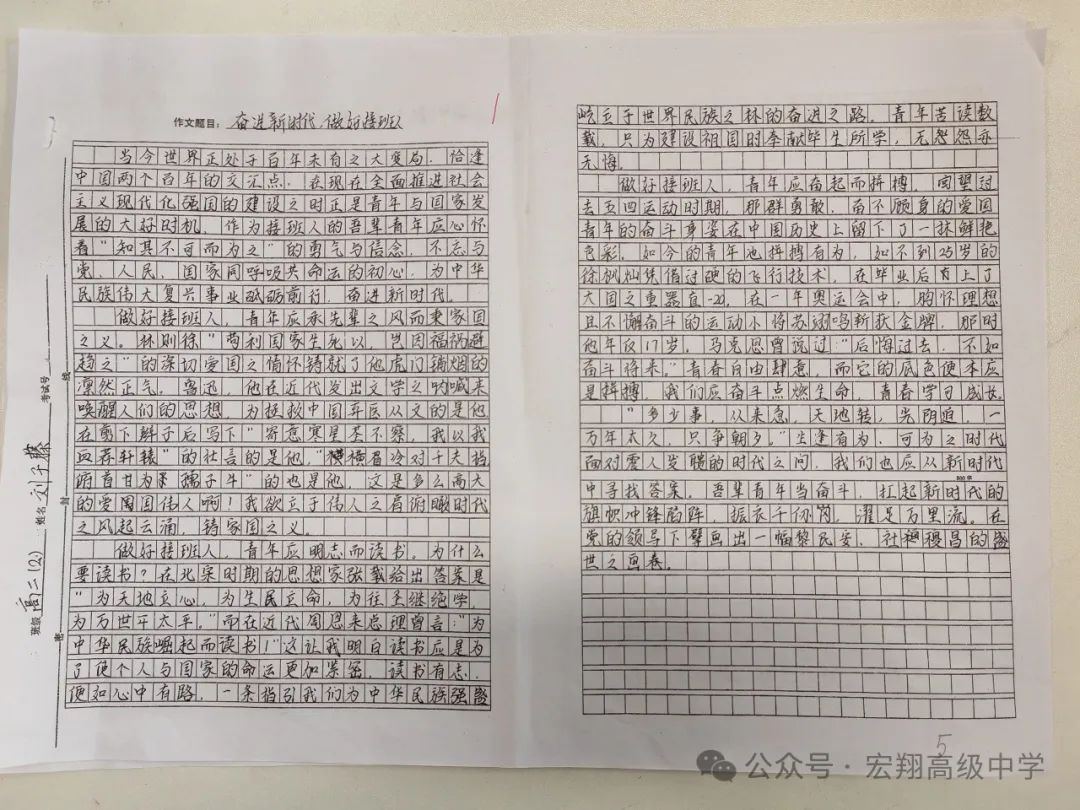 作文题目：奋进新时代，做好接班人
当今世界正处于百年未有之大变局，恰逢
中国两个百年的交汇点，在现在全面推进社会
主义现代化强国的建设之时正是青年与国家发
展的大好时机，作为接班人的吾辈青年应心怀
着“知其不可而为之”的勇气与信念，不忘与
党、人民，国家同呼吸共命运的初心，为中华
民族伟大复兴事业砥砺前行，奋进新时代。
做好接班人，青年应承先辈之风而秉家国
之义。林则徐“苟利国家生死以，岂因福祸避
趋之”的深切爱国之情怀铸就了他虎门销烟的
凛然正气。鲁迅，他在近代发出文学之呐喊来
唤醒人们的思想，为拯救中国弃医从文的是他
在剪下辫子后写下“寄意寒星荃不察，我以我
血荐轩辕”的壮言的是他，“横眉冷对千夫指
俯首甘为孺子牛”的也是他，这是多么高大
的爱国伟人啊！我欲立于伟人之肩俯瞰时代
之风起云涌，铸家国之义。
做好接班人，青年应明志而读书。为什么
要读书？在北宋时期的思想家张载给出答案是
“为天地立心，为生民立命，为往圣继绝学，
为万世开太平。”而在近代周恩来总理曾言：“为
中华民族崛起而读书！”这让我明白读书应是为
了使个人与国家的命运更加紧密，读书有志，
便如心中有路，一条指引我们为中华民族强盛
屹立于世界民族之林的奋进之路。青年苦读数
载，只为建设祖国时奉献毕生所学，无怨亦
无悔。
做好接班人，青年应奋起而拼搏，回望过
去五四运动时期，那群勇敢，奋不顾身的爱国
青年的奋斗身姿在中国历史上留下了一抹鲜艳
色彩，如今的青年也拼搏有为，如不到25岁的
徐枫灿凭借过硬的飞行技术，在毕业后上了
大国之重器直-20，在一年奥运会中，胸怀理想
且不懈奋斗的运动小将苏翊鸣斩获金牌，那时
他年仅17岁，马克思曾说过：“后悔过去，不如
奋斗将来。”青春自由肆意，而它的底色便本应
是拼搏，我们应奋斗点燃生命，青春学习成长。
“多少事，从来急，天地转，光阴迫，一
万年太久，只争朝夕。”生逢有为、可为之时代
面对震人发聩的时代之问，我们也应从新时代
中寻找答案。吾辈青年当奋斗，扛起新时代的
800字
旗帜冲锋陷阵，振衣千仞岗，濯足万里流。在
党的领导下擘画出一幅黎民安，社稷昌的盛
世之画卷。
班级 高二(2) 姓名 刘子藤 考试号
密 封 线
5
公众号·宏翔高级中学